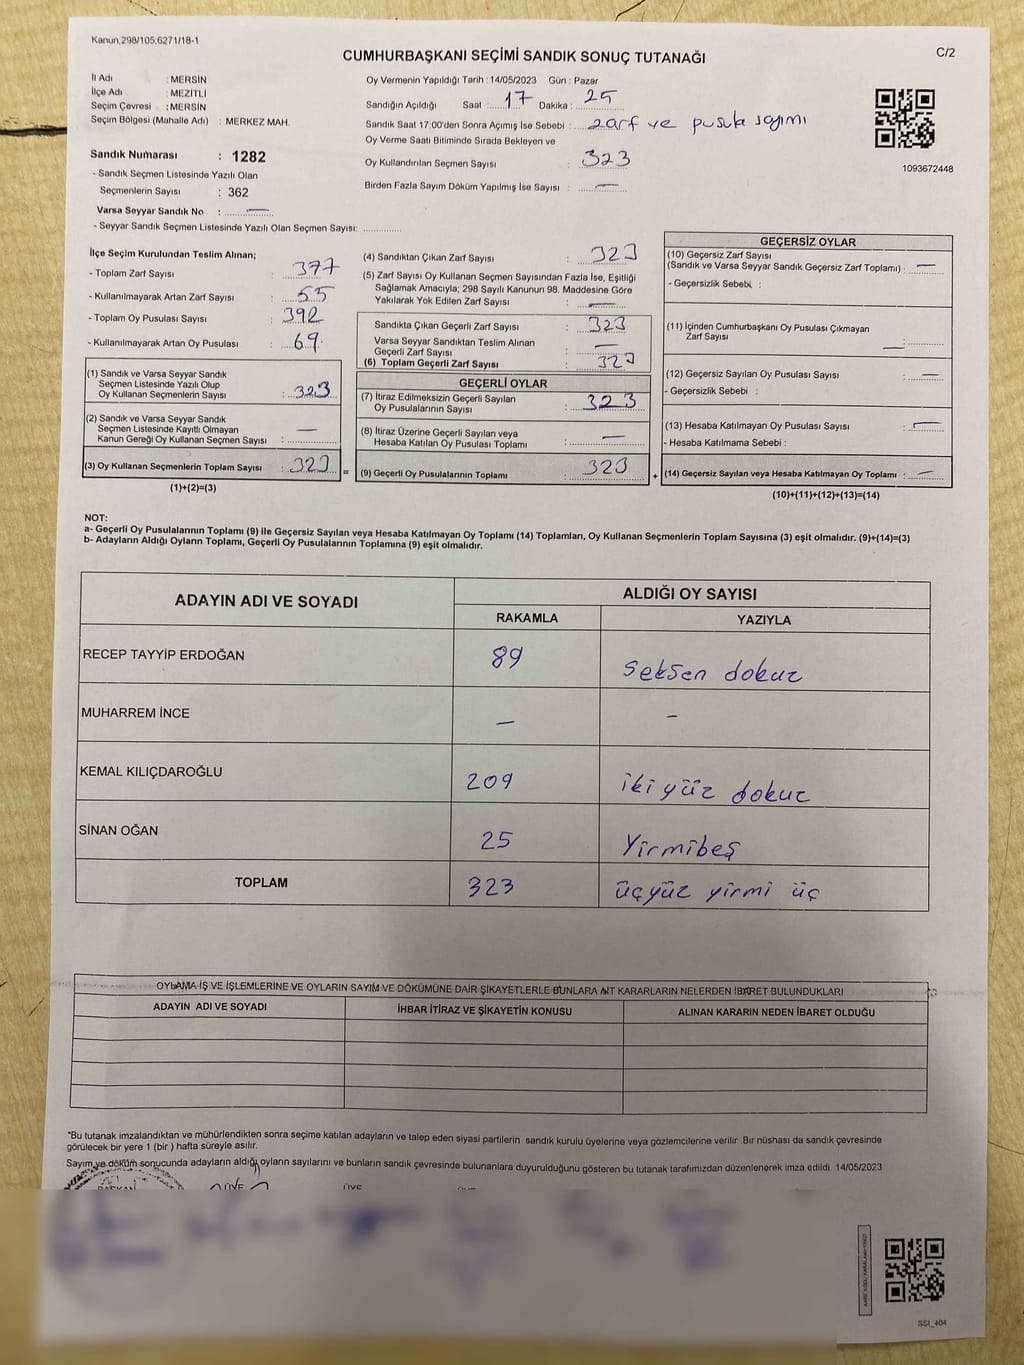 Kanun,298/105,6271/18-1
C/2
CUMHURBAŞKANI SEÇİMİ SANDIK SONUÇ TUTANAĞI
İl Adı : MERSİN
İlçe Adı : MEZİTLİ
Seçim Çevresi : MERSİN
Seçim Bölgesi (Mahalle Adı) : MERKEZ MAH.
Oy Vermenin Yapıldığı Tarih : 14/05/2023 Gün : Pazar
Sandığın Açıldığı Saat 17 Dakika : 25
Sandık Saat 17:00'den Sonra Açımış İse Sebebi : zarf ve pusula sayımı
Oy Verme Saati Bitiminde Sırada Bekleyen ve
Oy Kullandırılan Seçmen Sayısı : 323
Birden Fazla Sayım Döküm Yapılmış İse Sayısı : —
1093672448
Sandık Numarası : 1282
- Sandık Seçmen Listesinde Yazılı Olan
Seçmenlerin Sayısı : 362
Varsa Seyyar Sandık No : —
- Seyyar Sandık Seçmen Listesinde Yazılı Olan Seçmen Sayısı:
İlçe Seçim Kurulundan Teslim Alınan;
- Toplam Zarf Sayısı : 377
- Kullanılmayarak Artan Zarf Sayısı : 55
- Toplam Oy Pusulası Sayısı : 392
- Kullanılmayarak Artan Oy Pusulası : 69
(1) Sandık ve Varsa Seyyar Sandık
Seçmen Listesinde Yazılı Olup
Oy Kullanan Seçmenlerin Sayısı : 323
(2) Sandık ve Varsa Seyyar Sandık
Seçmen Listesinde Kayıtlı Olmayan —
Kanun Gereği Oy Kullanan Seçmen Sayısı :
(3) Oy Kullanan Seçmenlerin Toplam Sayısı : 323 =
(1)+(2)=(3)
(4) Sandıktan Çıkan Zarf Sayısı : 323
(5) Zarf Sayısı Oy Kullanan Seçmen Sayısından Fazla İse, Eşitliği
Sağlamak Amacıyla; 298 Sayılı Kanunun 98. Maddesine Göre
Yakılarak Yok Edilen Zarf Sayısı : —
Sandıkta Çıkan Geçerli Zarf Sayısı : 323
Varsa Seyyar Sandıktan Teslim Alınan
Geçerli Zarf Sayısı : —
(6) Toplam Geçerli Zarf Sayısı : 323
GEÇERLİ OYLAR
(7) İtiraz Edilmeksizin Geçerli Sayılan
Oy Pusulalarının Sayısı : 323
(8) İtiraz Üzerine Geçerli Sayılan veya
Hesaba Katılan Oy Pusulası Toplamı : —
(9) Geçerli Oy Pusulalarının Toplamı : 323 +
GEÇERSİZ OYLAR
(10) Geçersiz Zarf Sayısı
(Sandık ve Varsa Seyyar Sandık Geçersiz Zarf Toplamı) : —
- Geçersizlik Sebebi :
(11) İçinden Cumhurbaşkanı Oy Pusulası Çıkmayan
Zarf Sayısı : —
(12) Geçersiz Sayılan Oy Pusulası Sayısı : —
- Geçersizlik Sebebi :
(13) Hesaba Katılmayan Oy Pusulası Sayısı : —
- Hesaba Katılmama Sebebi :
(14) Geçersiz Sayılan veya Hesaba Katılmayan Oy Toplamı : —
(10)+(11)+(12)+(13)=(14)
NOT:
a- Geçerli Oy Pusulalarının Toplamı (9) ile Geçersiz Sayılan veya Hesaba Katılmayan Oy Toplamı (14) Toplamları, Oy Kullanan Seçmenlerin Toplam Sayısına (3) eşit olmalıdır. (9)+(14)=(3)
b- Adayların Aldığı Oyların Toplamı, Geçerli Oy Pusulalarının Toplamına (9) eşit olmalıdır.
ADAYIN ADI VE SOYADI ALDIĞI OY SAYISI
RAKAMLA YAZIYLA
RECEP TAYYİP ERDOĞAN 89 seksen dokuz
MUHARREM İNCE — —
KEMAL KILIÇDAROĞLU 209 ikiyüz dokuz
SİNAN OĞAN 25 Yirmibeş
TOPLAM 323 üçyüz yirmi üç
OYLAMA İŞ VE İŞLEMLERİNE VE OYLARIN SAYIM VE DÖKÜMÜNE DAİR ŞİKAYETLERLE BUNLARA AİT KARARLARIN NELERDEN İBARET BULUNDUKLARI
ADAYIN ADI VE SOYADI İHBAR İTİRAZ VE ŞİKAYETİN KONUSU ALINAN KARARIN NEDEN İBARET OLDUĞU
*Bu tutanak imzalandıktan ve mühürlendikten sonra seçime katılan adayların ve talep eden siyasi partilerin sandık kurulu üyelerine veya gözlemcilerine verilir. Bir nüshası da sandık çevresinde
görülecek bir yere 1 (bir ) hafta süreyle asılır.
Sayım ve döküm sonucunda adayların aldığı oyların sayılarını ve bunların sandık çevresinde bulunanlara duyurulduğunu gösteren bu tutanak tarafımızdan düzenlenerek imza edildi. 14/05/2023
BAŞKAN ÜYE ÜYE
SSI_404